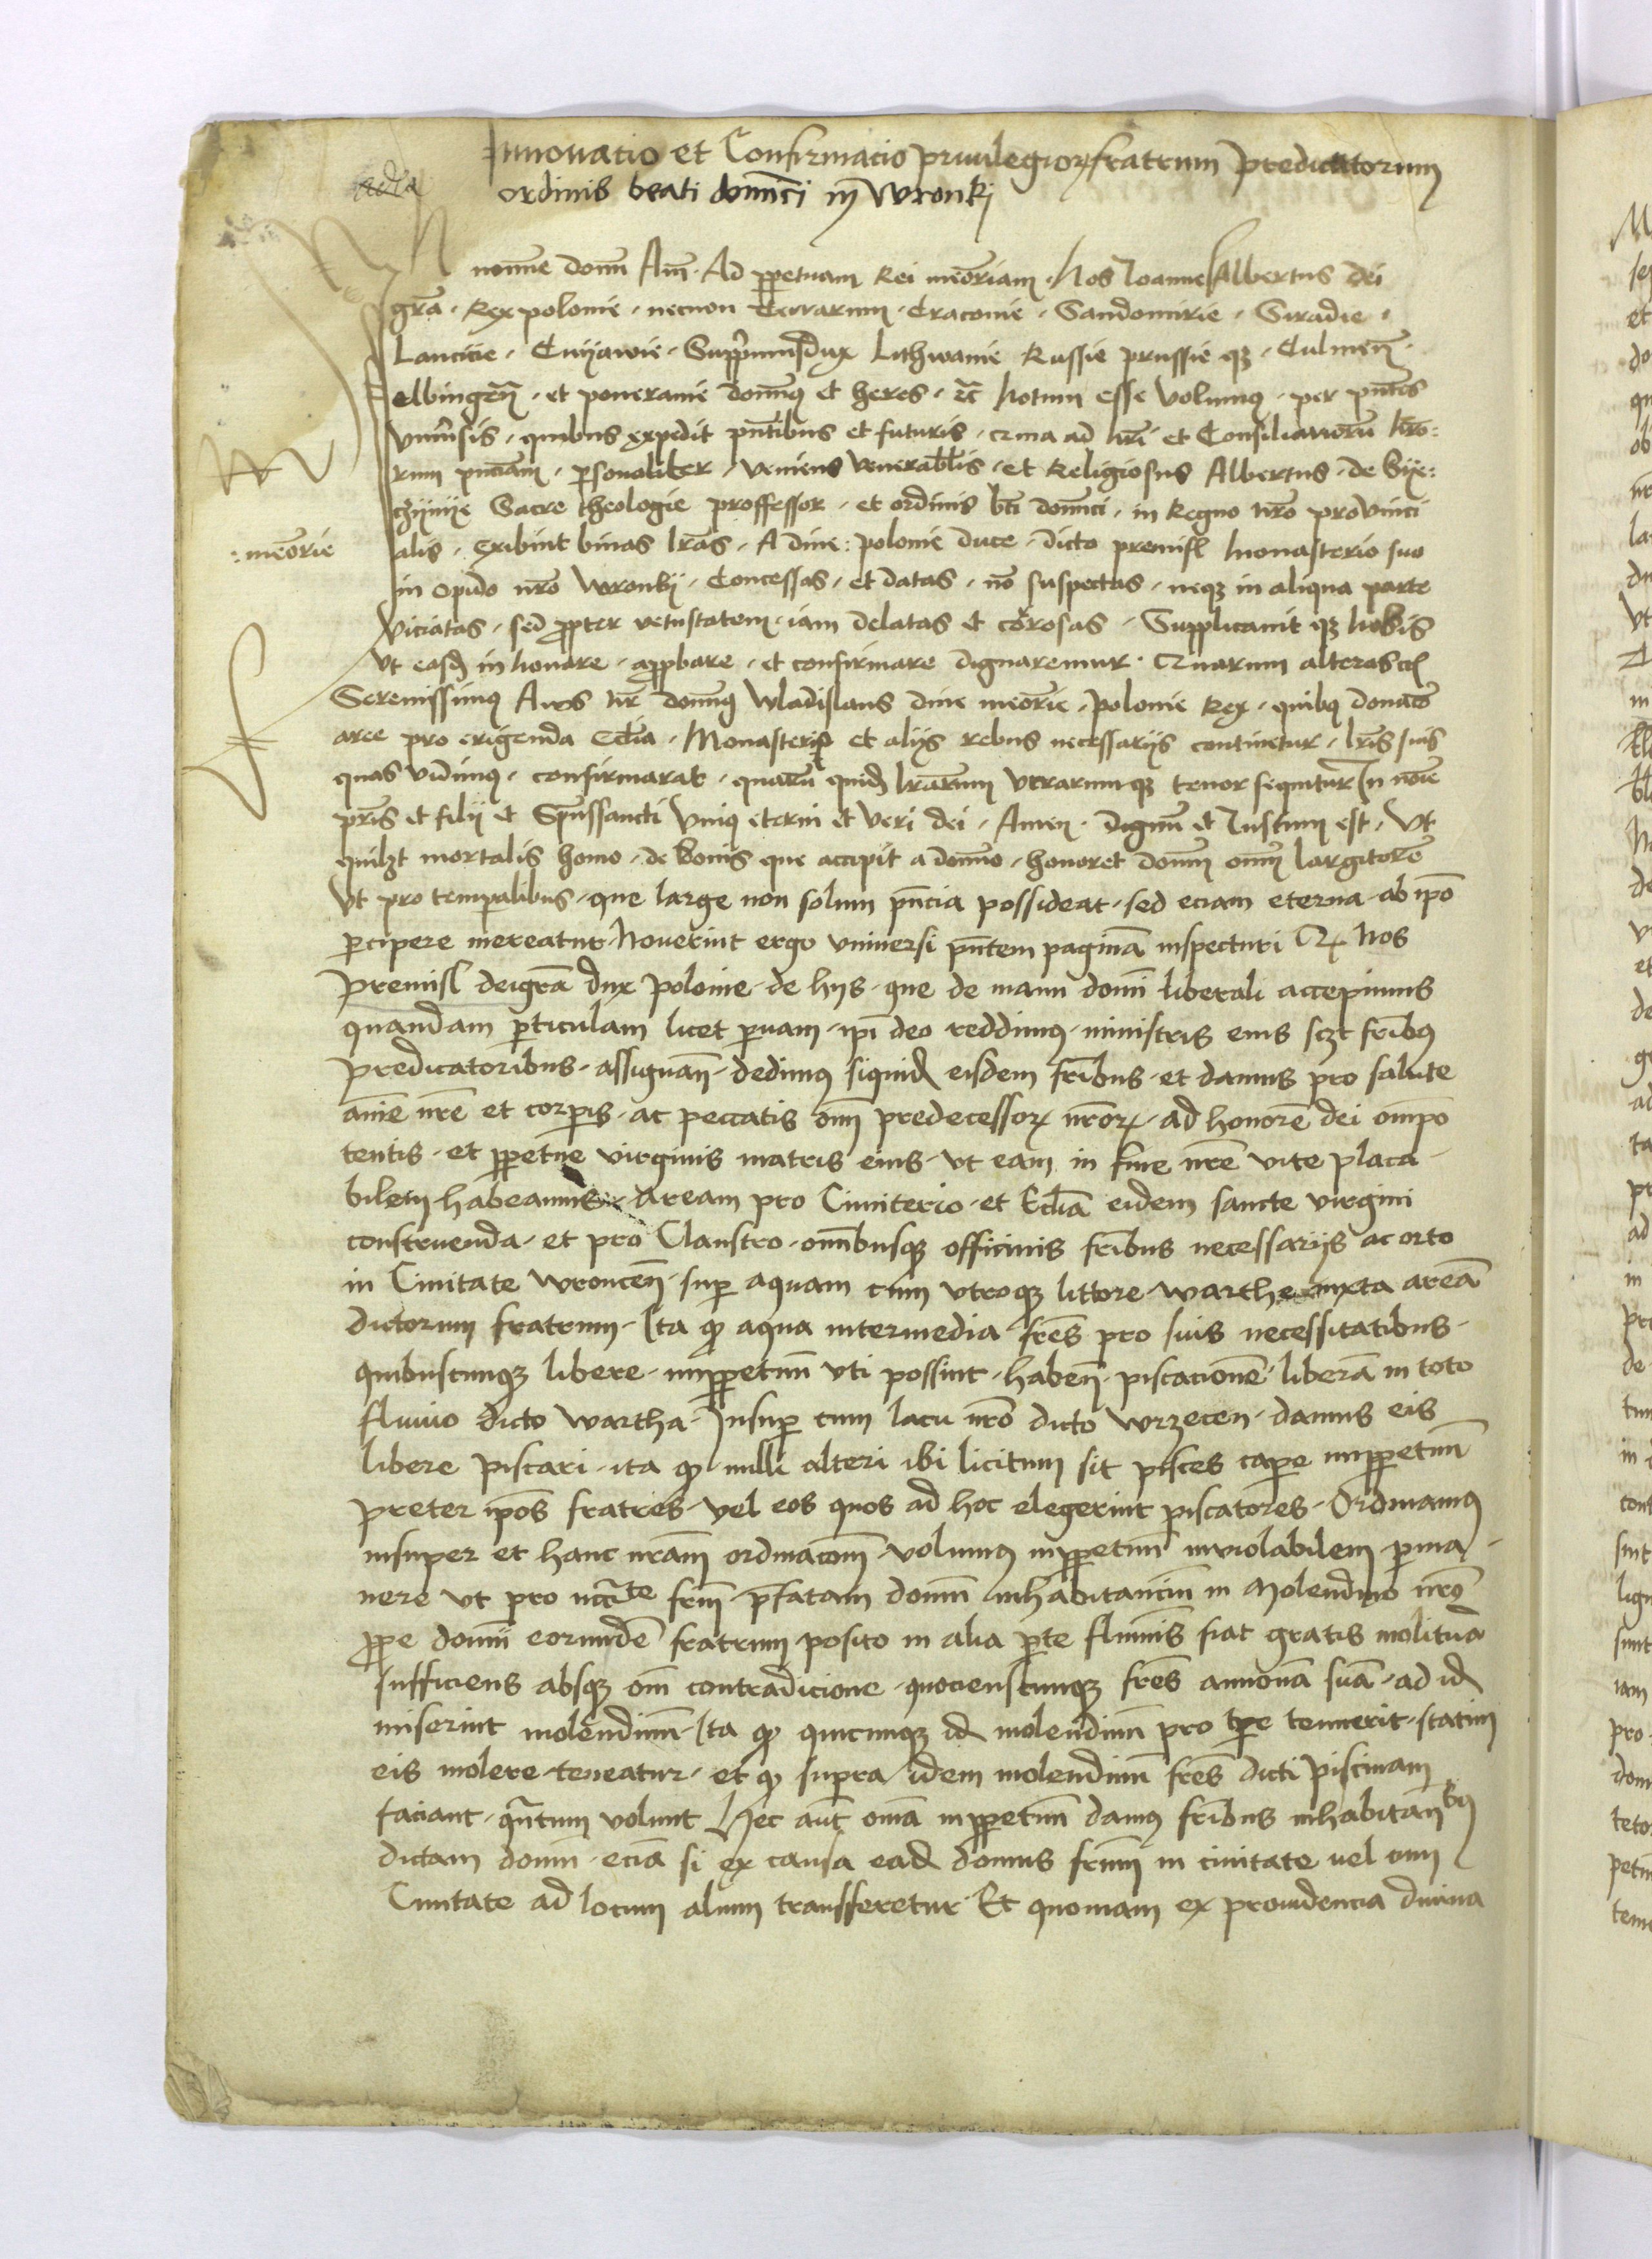 Innovatio et Confirmacio priuilegiorꝝ fratrum predicatorum
ordinis beati dominici in Wronkj
In nomine domini Amen · Ad perpetuam Rei memoriam · Nos Joannes Albertus dei
gra · Rex polonie · necnon terrarum · Cracouie · Sandomirie · Siradie ·
Lancicie · Cuijawie · Supprimus dux Lithwanie Russie prussie qꝫ · Culmeñ ·
elbingeñ · et pomeranie domīnꝰ et heres · ꝛc̄ Notum esse volumꝰ · per pn̄tes
vniūsis · quibus expedit pn̄tibus et futuris · quia ad nr̄i et Consiliariorū nr̄o:
rum pn̄ciam · personaliter · veniens venerabilis · et Religiosus Albertus · de Sye:
czijnije Sacre theologie proffessor · et ordinis bt̄i domīnci · in Regno nr̄o provinci
: memorie
alis · exibuit binas lr̄as · A diue: polonie duce · dicto premisl monasterio suo
in opido nr̄o Wronkij · Concessas · et datas · nō suspectas · neqꝫ in aliqua parte
viciatas · sed ꝓpter vetustatem · iam delatas et corosas · Supplicauit qꝫ nobis
vt easd in houare · aꝓbare · et confirmare dignaremur · Quarum alteras ecl
Serenissimꝰ Auꝰ nr̄ domīnꝰ Wladislaus diue memorie · polonie Rex · quibꝰ donacō
aree pro erigenda Ecclia · Monasterio et alijs rebus necessarijs continetur · lr̄is suis
quas vidimꝰ · confirmarat · quarū quid lr̄arum vtrarumqꝫ tenor sequitur In noīe
pr̄is et filij et Spūssancti vniꝰ eterni et veri dei · Amen · Dignū et Iustum est · vt
quilꝫt mortalis homo · de bonis que accipit a domīno · honoret domīnū omīū largitorē
vt pro temporalibus · que large non solum pn̄cia possideat · sed eciam eterna · ab ip̄o
percipere mereatur · Nouerint ergo vniuersi pn̄tem paginā inspecturi Qꝛ Nos
premisl deigrā dux polonie · de hijs · que de manu domī liberali accepimus
quandam perticulam licet paruam · ip̄i deo reddimꝰ · ministris eius sczt fr̄ibꝰ
predicatoribus · assignan̄ · dedimꝰ siquid eisdem fr̄ibus · et damus pro salute
aīme nr̄e et corporis · ac peccatis omī predecessorꝝ nr̄orꝝ · ad honorē dei omīpo
tentis · et ꝑpetue virginis matris eius · vt eam in fine nr̄e vite placa-
bilem habeamus · aream pro Cimiterio · et Ecclīa eidem sancte virgini
construenda · et pro Claustro · omībusqꝫ officinis fr̄ibus necessarijs ac orto
in Ciuitate wronceñ · super aquam cum vtroqꝫ littore · warthe iuxta areā
dictorum fratrum · Ita qꝙ aqua intermedia fr̄es pro suis necessitatibus ·
quibuscumqꝫ libere · imꝑpetuū vti possint · habeñ · piscacionē · liberā in toto
fluuio dicto wartha · Insuper cum lacu nr̄o dicto wrzecen · damus eis
libere piscari · ita qꝙ nulli alteri ibi licitum sit pisces capere imꝑpetuū
preter ip̄os fratres · vel eos quos ad hoc elegerint piscatores · Ordinamꝰ
insuper et hanc nr̄am ordinacōnē volumꝰ imꝑpetuū inviolabilem perma-
nere vt pro ncc̄ate fr̄m p̄fatam domū inhabitanciū in Molendino nr̄o
ꝓpe domū eorumdē fratrum posito in alia parte fluminis fiat gratis molitura
sufficiens absqꝫ omī contradicione · quocienscumqꝫ fr̄es annonā suā · ad id
miserint molendinū · Ita qꝙ quicumqꝫ id molendinū pro tp̄re tenuerit · statim
eis molere teneatur · et qꝙ supra idem molendinū fr̄es dicti piscinam
faciant · qn̄tum volunt Hec aūt omīa imꝑpetuū damꝰ fr̄ibus inhabitantibꝰ
dictam domū · eciā si ex causa ead domus fr̄um in ciuitate uel cum
Ciuitate ad locum alium transfferetur · Et quoniam ex prouidencia diuina